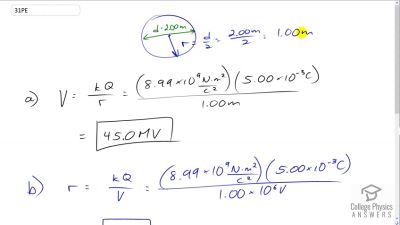 31PE
d = 2.00m
r = d/2 = 2.00m/2 = 1.00m
a) V = kQ/r = (8.99×10⁹ N·m²/C²)(5.00×10⁻³C)/1.00m
= 45.0MV
b) r = kQ/V = (8.99×10⁹ N·m²/C²)(5.00×10⁻³C)/1.00×10⁶V
College Physics
ANSWERS